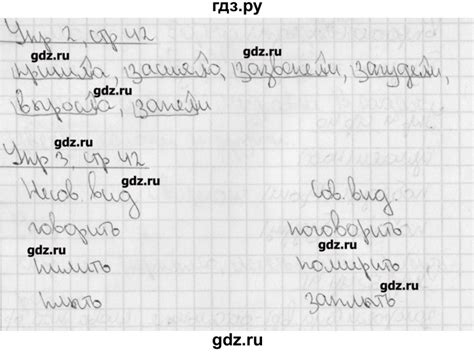 гдз.ру
Упр 2, стр 42
gdz.ru gdz.ru
пришла, засияло, зазвенели, загудели,
gdz.ru
выросла, запели
gdz.ru
Упр 3, стр 42
gdz.ru gdz.ru
Несов. вид Сов. вид.
gdz.ru
говорить поговорить
gdz.ru gdz.ru
помирить
gdz.ru gdz.ru
плыть заплыть
gdz.ru